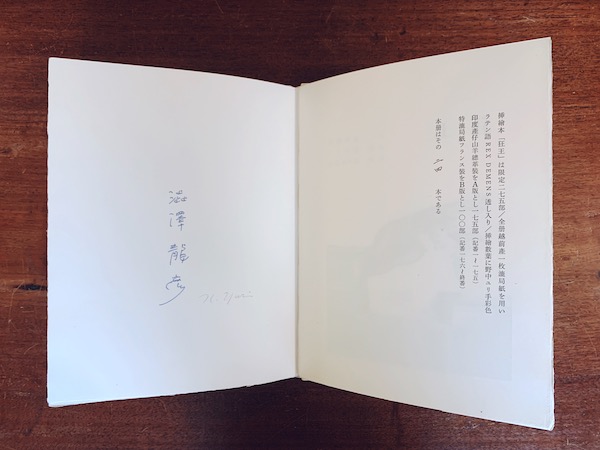 挿繪本「狂王」は限定二七五部/全册越前產一枚漉局紙を用い
ラテン語 REX DEMENS 透し入り/挿繪散葉に野中ユリ手彩色
印度產仔山羊總革裝をA版とし一七五部(記番一〜一七五)
特漉局紙フランス裝をB版とし一〇〇部(記番一七六〜終番)
本册はその 本である
澁澤龍彥